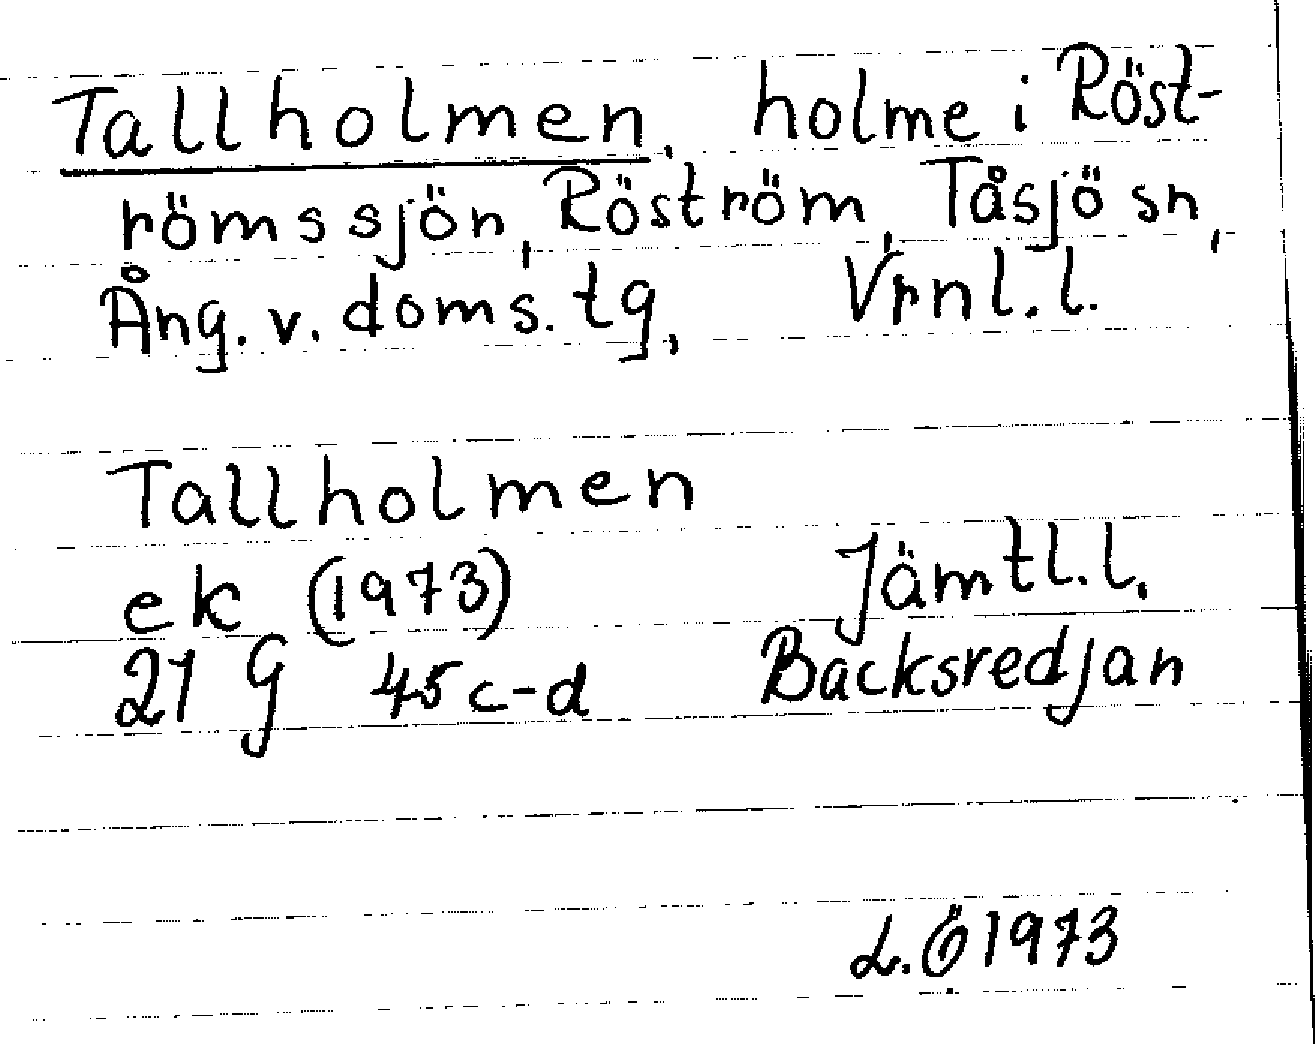 Tallholmen, holme i Röst-
römssjön, Röström, Tåsjö sn,
Ång. v. doms. tg, Vrnl. l.
Tallholmen
ek (1973) Jämtl. l.
21 G 45 c-d Backsredjan
L. Ö 1973